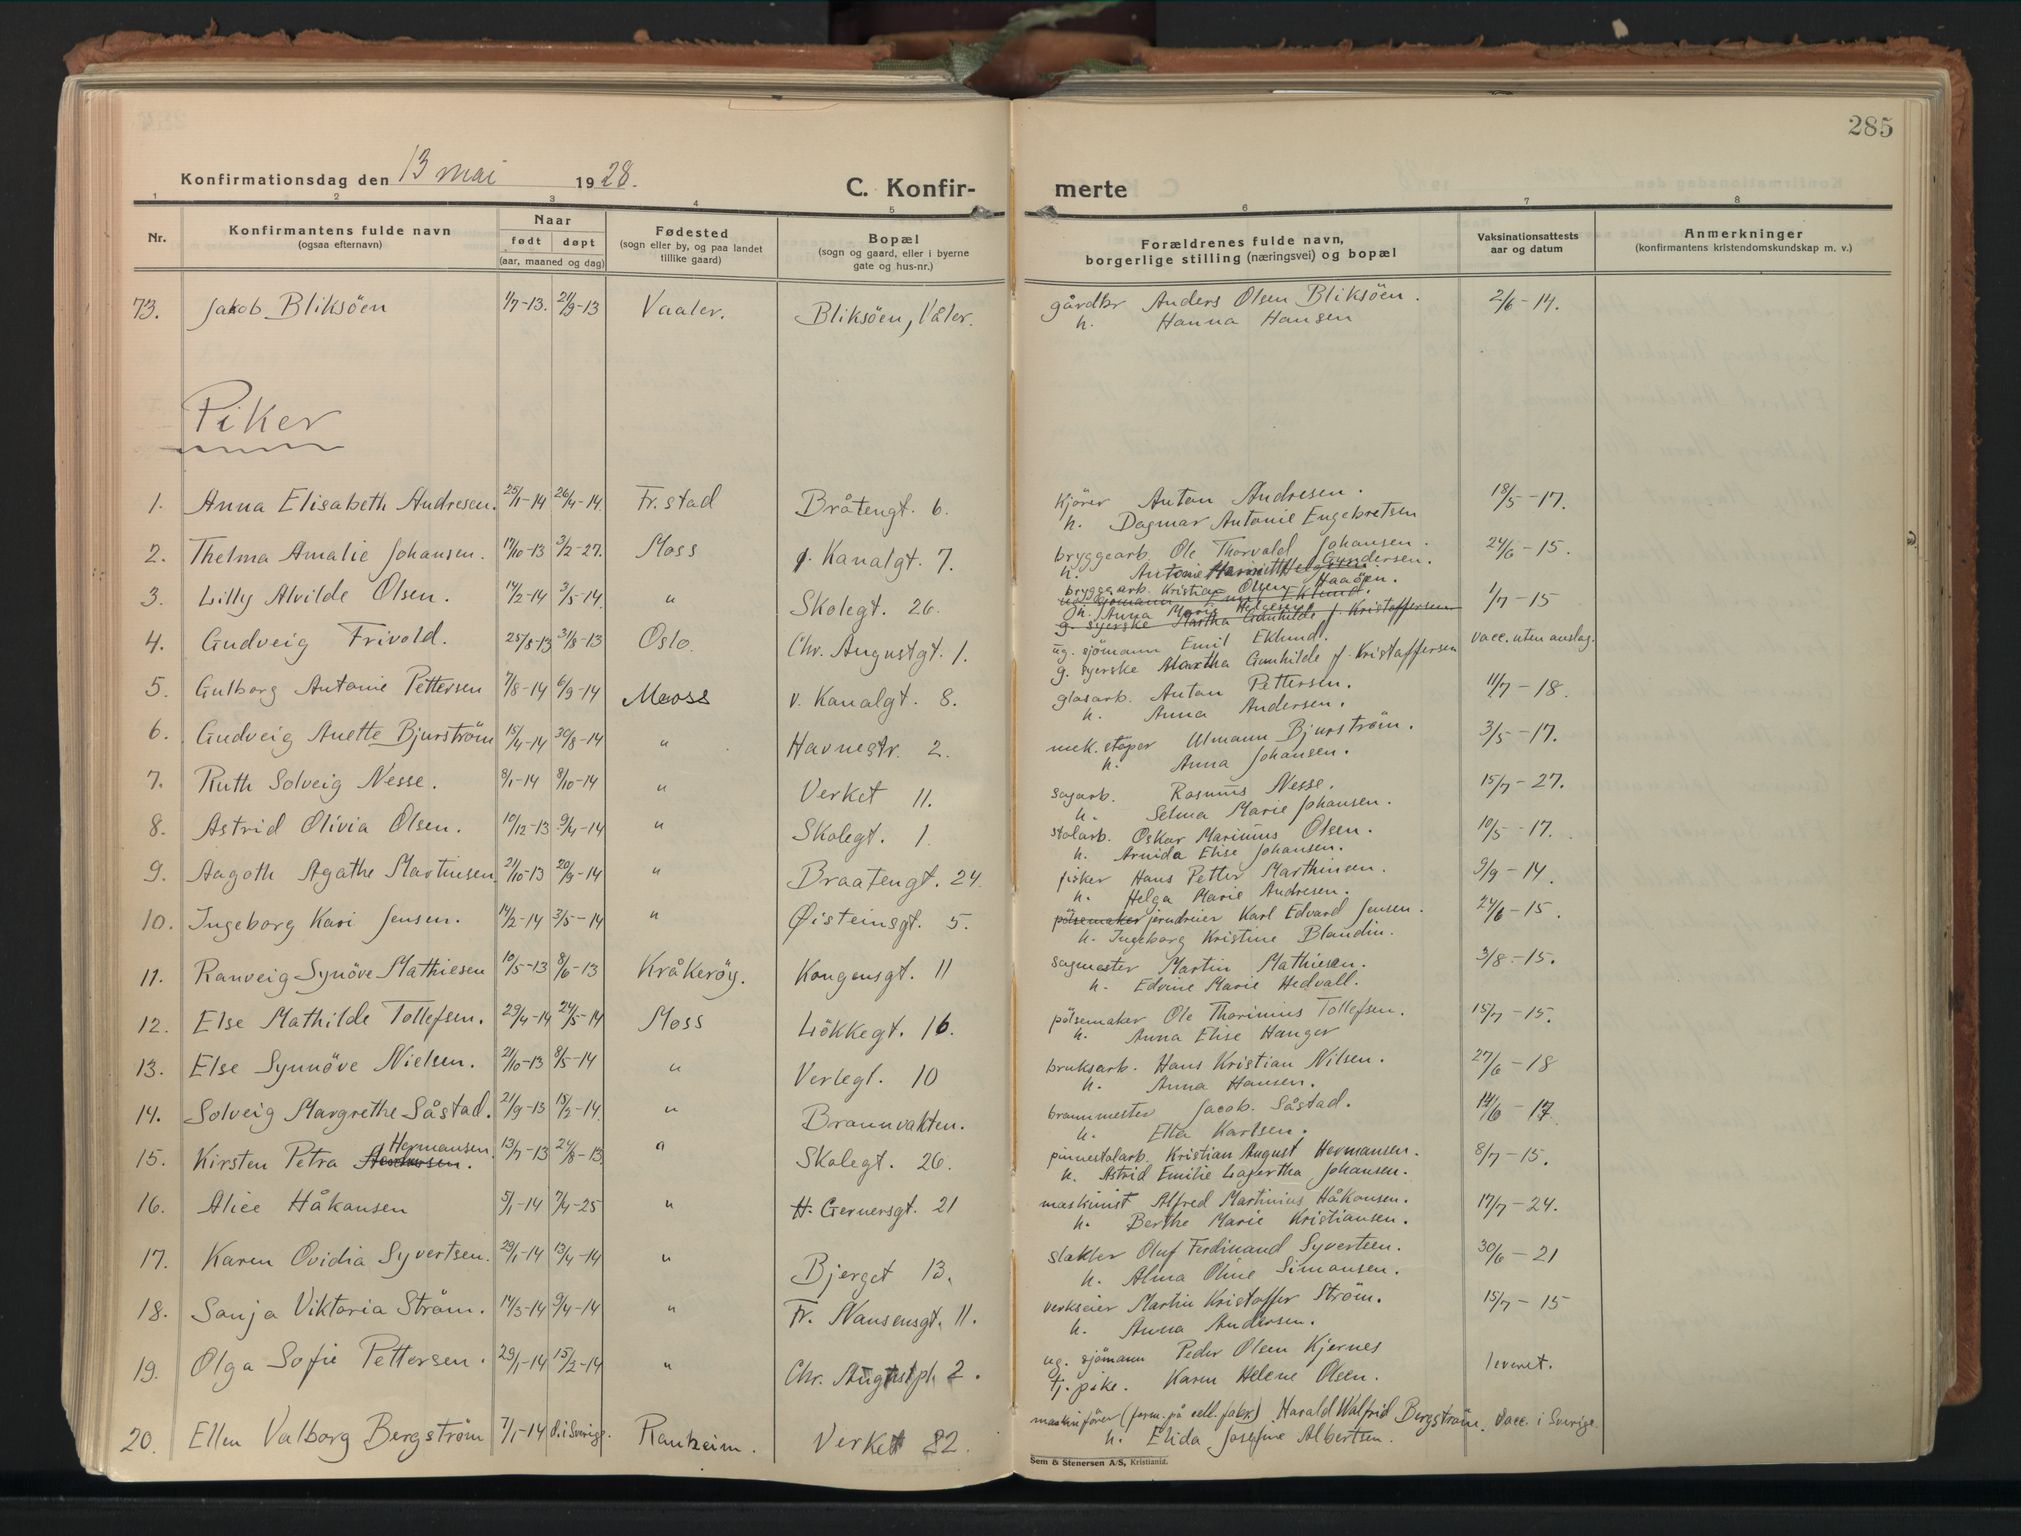 285
Konfirmationsdag den 13 mai 1928.
C. Konfir-merte
1 2 3 4 5 6 7 8
Nr. Konfirmantens fulde navn (ogsaa efternavn) Naar født døpt (aar, maaned og dag) Fødested (sogn eller by, og paa landet tillike gaard) Bopæl (sogn og gaard, eller i byerne gate og hus-nr.) Forældrenes fulde navn, borgerlige stilling (næringsvei) og bopæl Vaksinationsattests aar og datum Anmerkninger (konfirmantens kristendomskundskap m. v.)
73. Jakob Bliksöen 1/7-13. 21/9-13 Vaaler. Bliksöen, Våler. gårdbr Anders Olsen Bliksöen. 2/6-14.
h. Hanna Hansen
Piker
1. Anna Elisabeth Andresen. 25/1-14 26/4-14. Fr.stad Bråtengt. 6. Kjörer Anton Andresen. 18/5-17.
h. Dagmar Antonie Engebretsen
2. Thelma Amalie Johansen. 17/10-13 3/2-27. Moss Kanalgt. 7. bryggearb. Ole Thorvald Johansen. 24/6-15.
h. Antonie Gundersen.
3. Lilly Alvilde Olsen. 14/2-14 3/5-14. " Skolegt. 26. bryggearb. Kristian Olsen Haaöen. 1/7-15
h. Anna Marie Helgesen
g. syerske Martha Gunhilde f. Kristoffersen
4. Gudveig Frivold. 25/8-13 31/8-13 Oslo. Chr. Augustgt. 1. ug. sjömann Emil Eklund. vacc. uten anslag.
g. syerske Martha Gunhilde f. Kristoffersen
5. Gulborg Antonie Pettersen 7/8-14 6/9-14 Moss v. Kanalgt. 8. glasarb. Anton Pettersen. 11/7-18.
h. Anna Andersen.
6. Gudveig Anette Bjurström 15/4-14 30/8-14 " Havnestr. 2. mek. stöper Ulmann Bjurström. 3/5-17.
h. Anna Johansen.
7. Ruth Solveig Nesse. 8/1-14 8/10-14 " Verket 11. sagarb. Rasmus Nesse. 15/7-27.
h. Selma Marie Johansen.
8. Astrid Olivia Olsen. 10/12-13 9/4-14 " Skolegt. 1. stolarb. Oskar Marinius Olsen. 10/5-17.
h. Arnida Elise Johansen.
9. Aagoth Agathe Martinsen 21/10-13 20/9-14 " Braatengt. 24. fisker Hans Petter Marthinsen. 9/9-14.
h. Helga Marie Andresen.
10. Ingeborg Kari Jensen. 14/2-14 3/5-14 " Øisteinsgt. 5. pölsemaker jerndreier Karl Edvard Jensen. 24/6-15.
h. Ingeborg Kristine Blandin.
11. Ranveig Synöve Mathiesen 10/5-13 8/6-13 Kråkeröy. Kongensgt. 11 sagmester Martin Mathiesen. 3/8-15.
h. Edvine Marie Hedvall.
12. Else Mathilde Tollefsen. 29/4-14 24/5-14 Moss Lökkegt. 16. pölsemaker Ole Thorinius Tollefsen. 15/7-15.
h. Anna Elise Hanger
13. Else Synnöve Nielsen. 21/10-13 8/5-14 " Verlegt. 10 bruksarb. Hans Kristian Nilsen. 27/6-18
h. Anna Hansen.
14. Solveig Margrethe Såstad. 21/9-13 15/2-14. " Brannvakten. brannmester Jacob Såstad. 14/6-17
h. Etta Karlsen.
15. Kirsten Petra Hermansen. 13/7-13 24/8-13 " Skolegt. 26. pinnestolarb. Kristian August Hermansen. 8/7-15.
h. Astrid Emilie Lagertha Johansen.
16. Alice Håkansen 5/1-14 7/4-25 " H. Gernersgt. 21 maskinist Alfred Martinius Håkonsen. 17/7-24.
h. Berthe Marie Kristiansen.
17. Karen Ovidia Syvertsen. 29/1-14 13/4-14 " Bjerget 13. slakter Oluf Ferdinand Syvertsen. 30/6-21
h. Alma Oline Simonsen.
18. Sonja Viktoria Ström. 14/3-14 9/4-14 " Fr. Nansensgt. 11. verkseier Martin Kristoffer Ström. 15/7-15
h. Anna Andersen.
19. Olga Sofie Pettersen. 29/1-14 15/2-14 " Chr. Augustpl. 2. ug. sjömann Peder Olsen Kjernes leveret.
tj. pike. Karen Helene Olsen.
20. Ellen Valborg Bergström 7/1-14 d. i Sverige. Ranheim. Verket 82. maskinförer (form. på cell. fabr.) Harald Walfrid Bergström. Vacc. i Sverige.
h. Elida Josefine Albertsen.
Sem & Stenersen A/S, Kristiania.